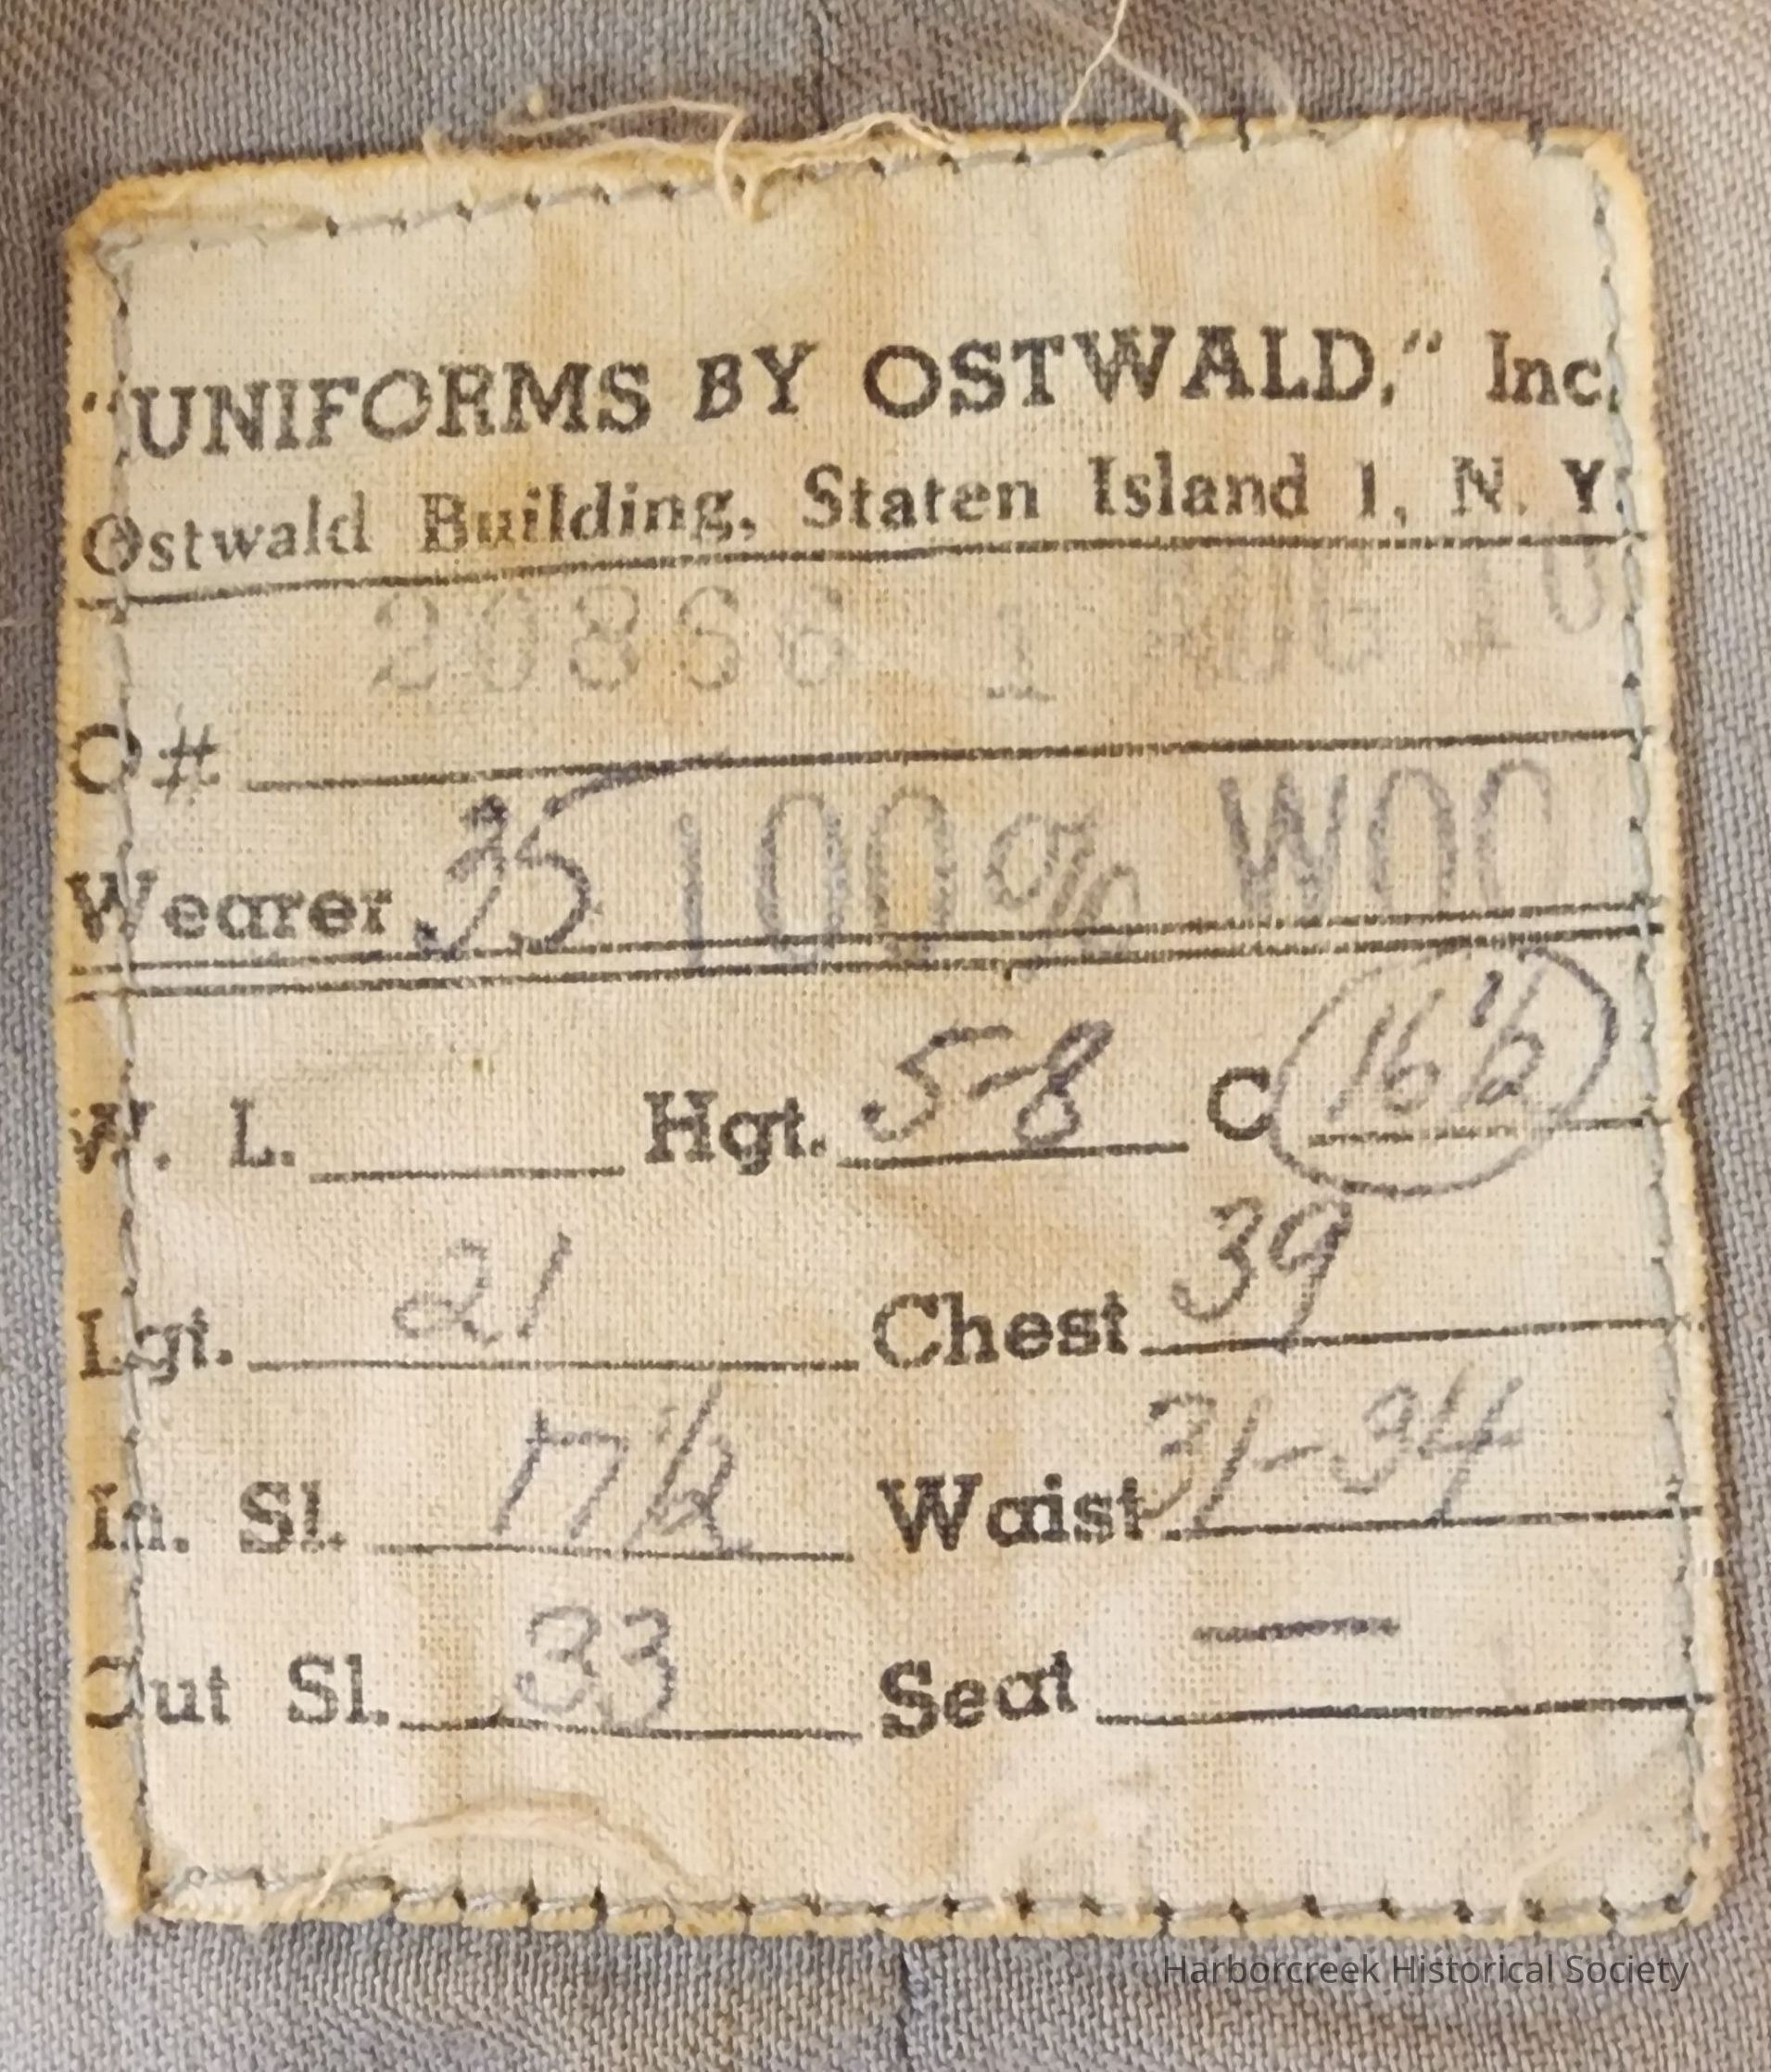 "UNIFORMS BY OSTWALD," Inc.
Ostwald Building, Staten Island 1, N. Y.
20866 1 AUG 10
O#
Wearer 35 100% WOO
W. L. Hgt. 5-8 C 16 1/2
Lgt. 21 Chest 39
In. Sl. 17 1/2 Waist 31-34
Out Sl. 33 Seat —
Harborcreek Historical Society